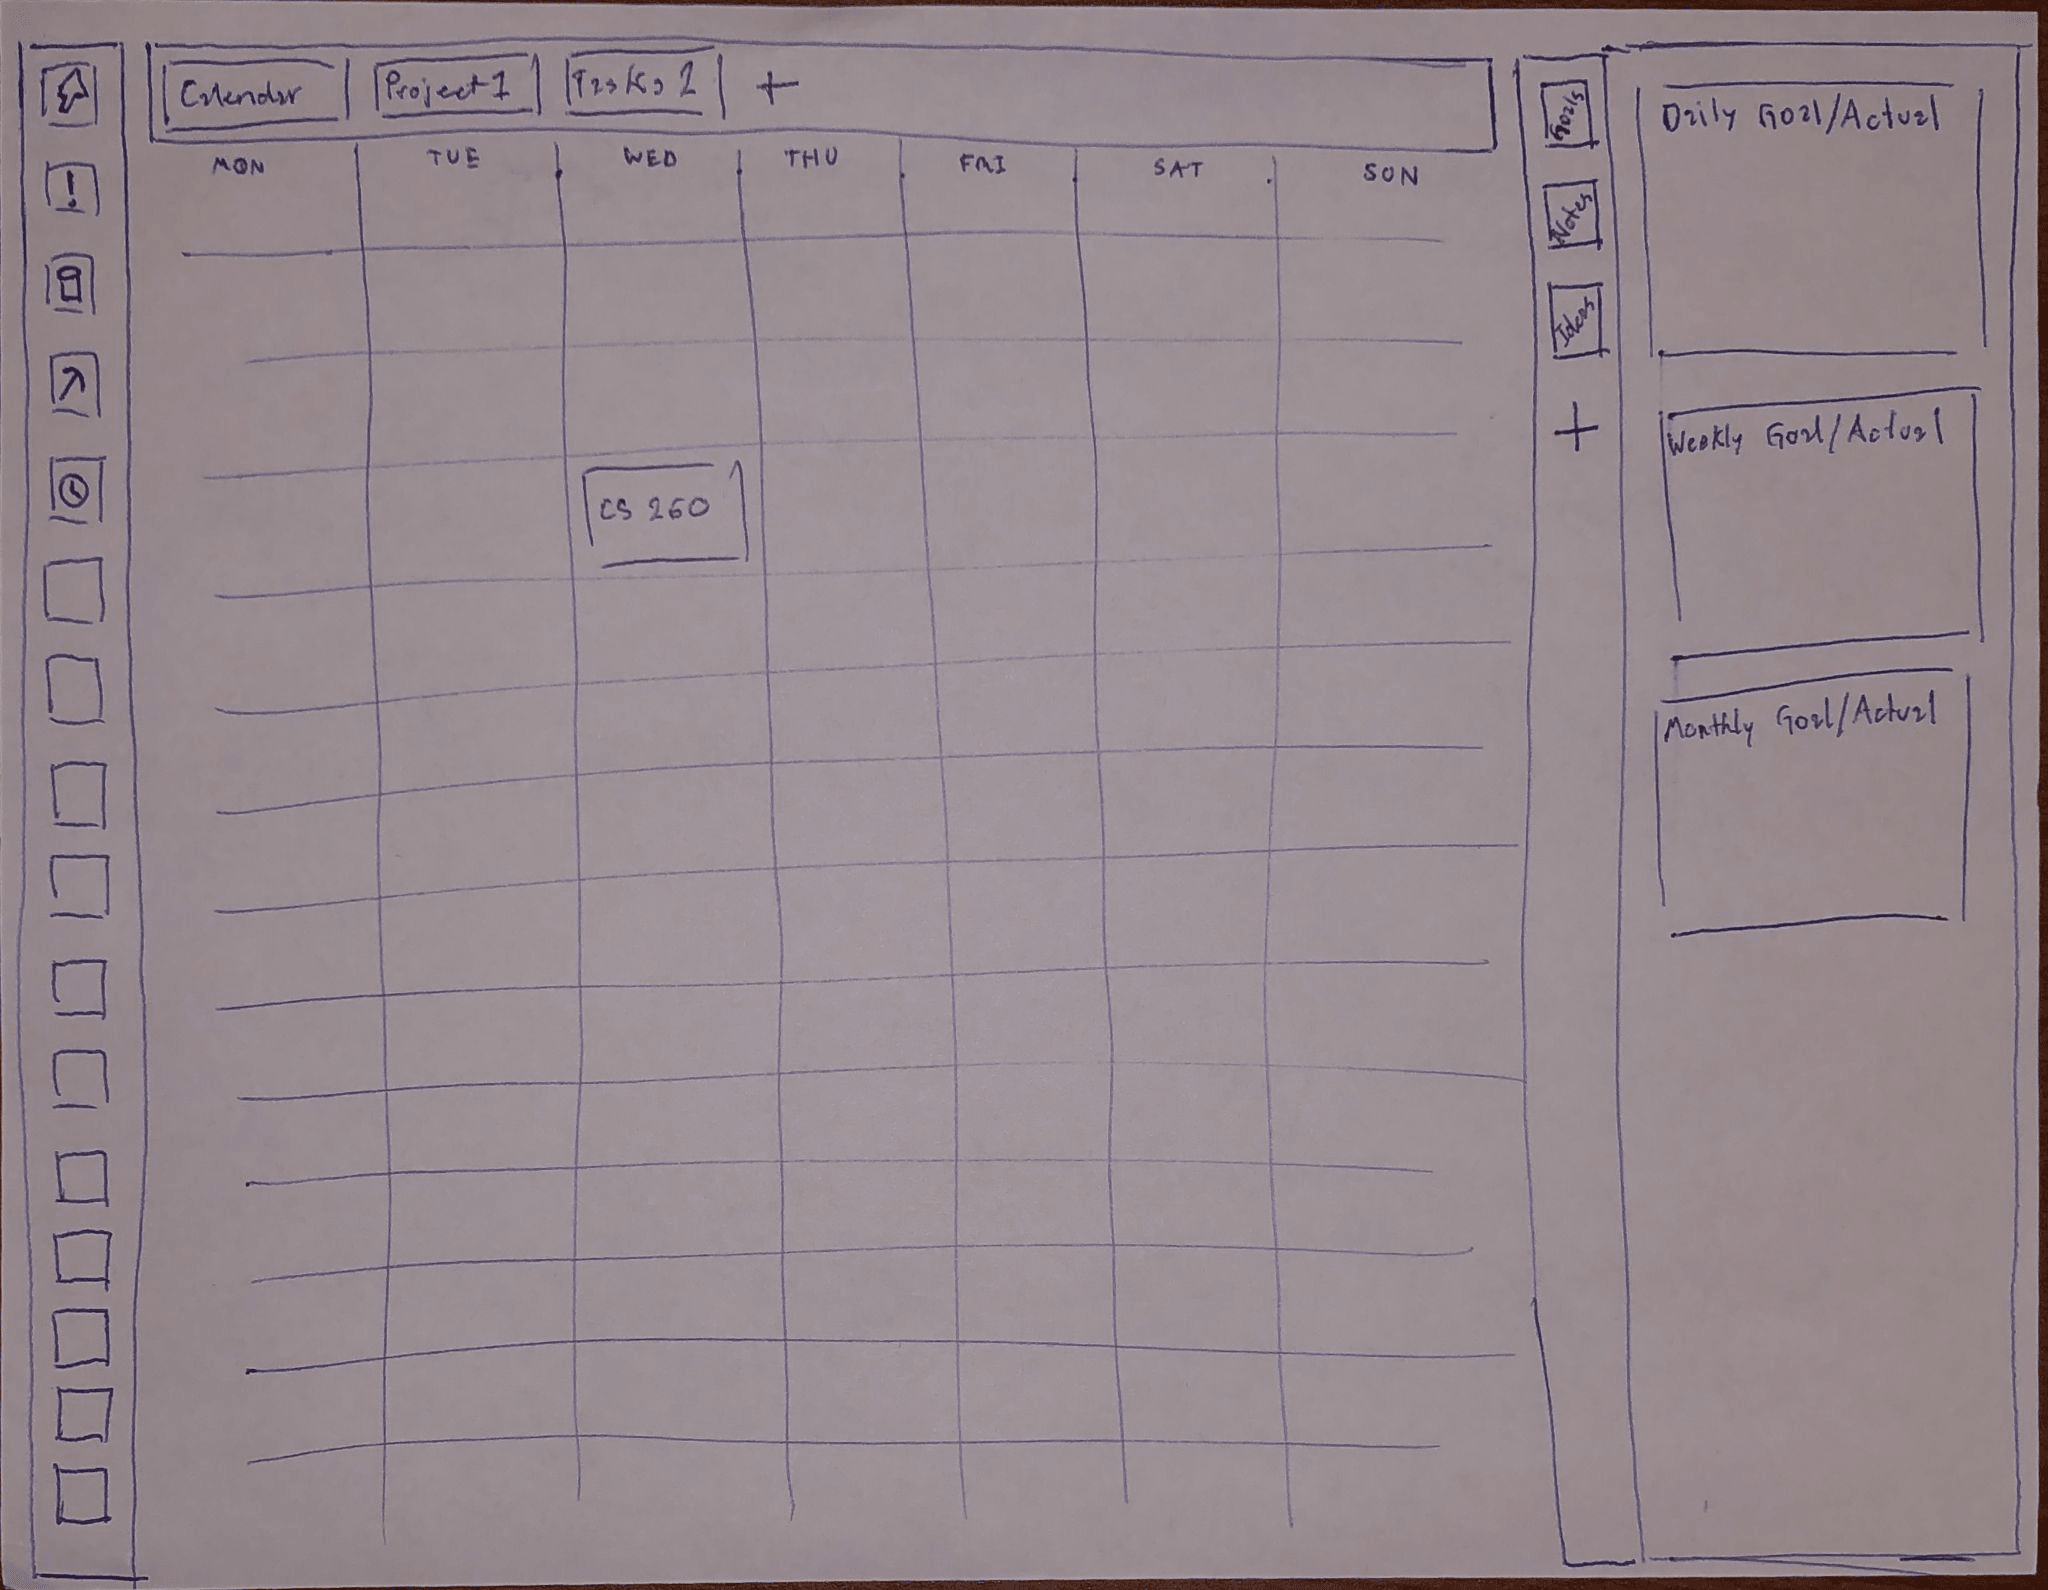 Calendar
Project 1
Tasks 2
+
MON TUE WED THU FRI SAT SUN
!
CS 260
Goals
Notes
Ideas
+
Daily Goal/Actual
Weekly Goal/Actual
Monthly Goal/Actual